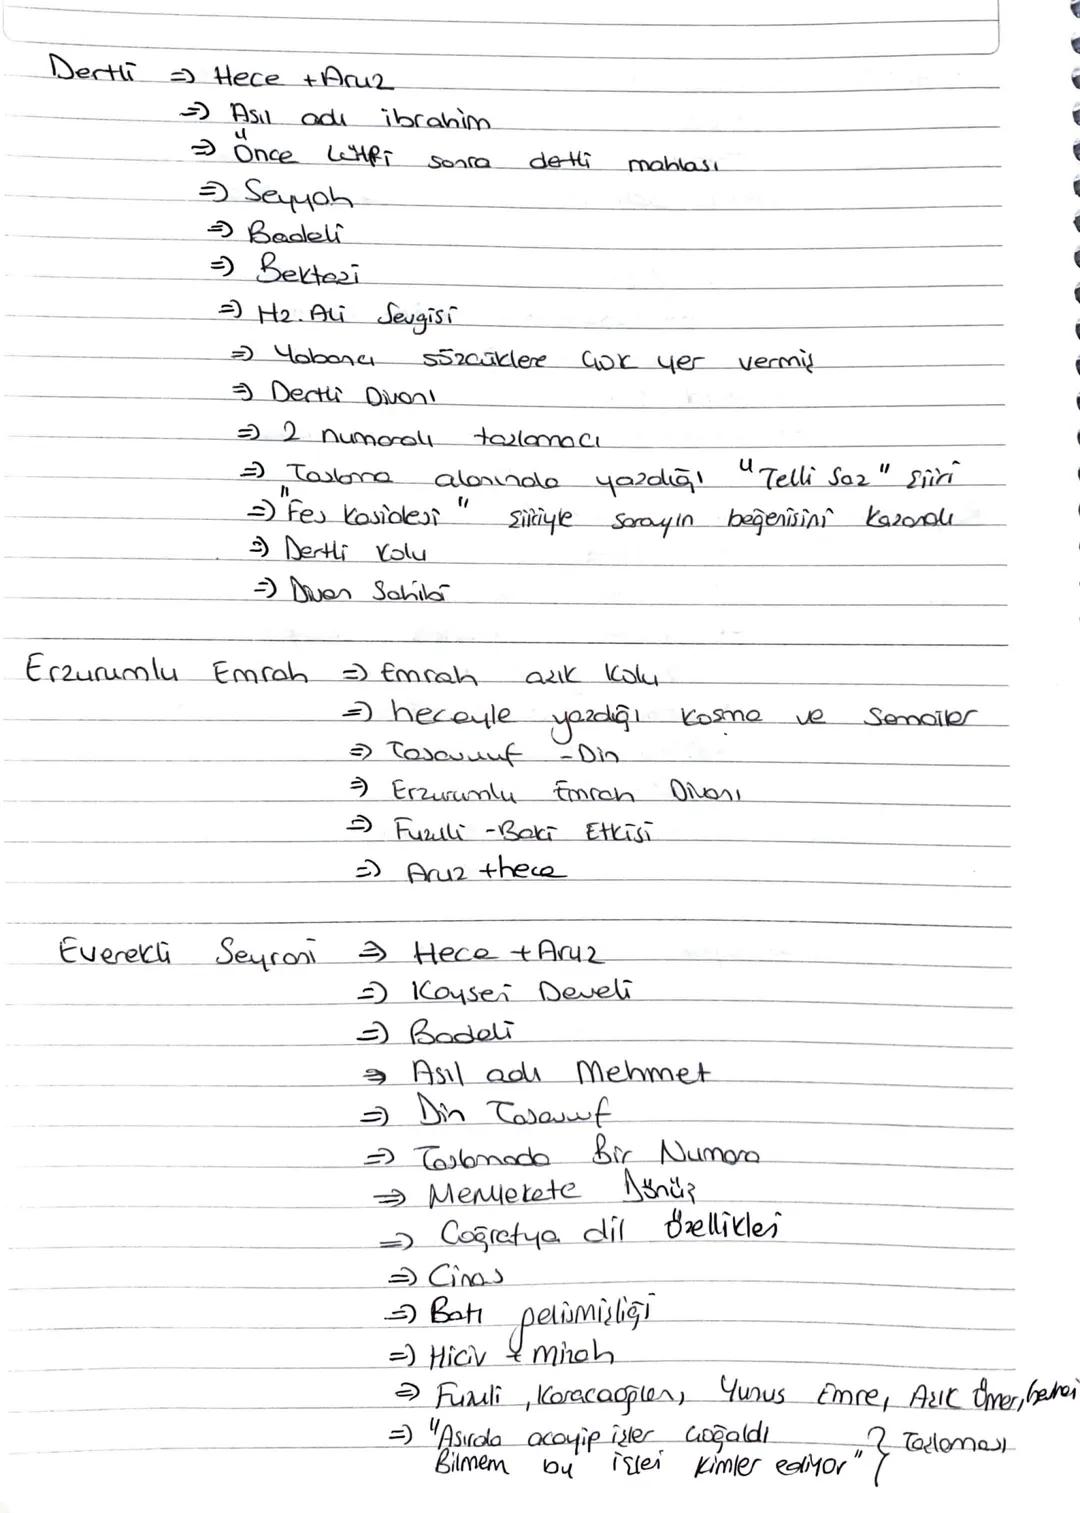 Dertli => Hece + Aruz
=> Asıl adı ibrahim
=> Önce Lütfi sonra detli mahlası
=> Seyyah
=> Badeli
=> Bektaşi
=> Hz. Ali Sevgisi
=> Yabancı sözcüklere çok yer vermiş
=> Dertli Divanı
=> 2 numaralı taşlamacı
=> Taşlama alanında yazdığı "Telli Saz" şiiri
=> "Fes Kasidesi" şiiriyle sarayın beğenisini kazandı
=> Dertli Kolu
=> Divan Sahibi
Erzurumlu Emrah => Emrah aşık Kolu
=> heceyle yazdığı koşma ve Semailer
=> Tasavvuf - Din
=> Erzurumlu Emrah Divanı
=> Fuzuli - Baki Etkisi
=> Aruz + hece
Everekli Seyrani => Hece + Aruz
=> Kayseri Develi
=> Badeli
=> Asıl adı Mehmet
=> Din Tasavvuf
=> Taşlamada Bir Numara
=> Memlekete Dönüş
=> Coğrafya dil özellikleri
=> Cinas
=> Batı gelişmişliği
=> Hiciv + mizah
=> Fuzuli, Karacaoğlan, Yunus Emre, Aşık Ömer,
=> "Asırda acayip işler çoğaldı } Taşlaması
Bilmem bu işleri kimler ediyor"